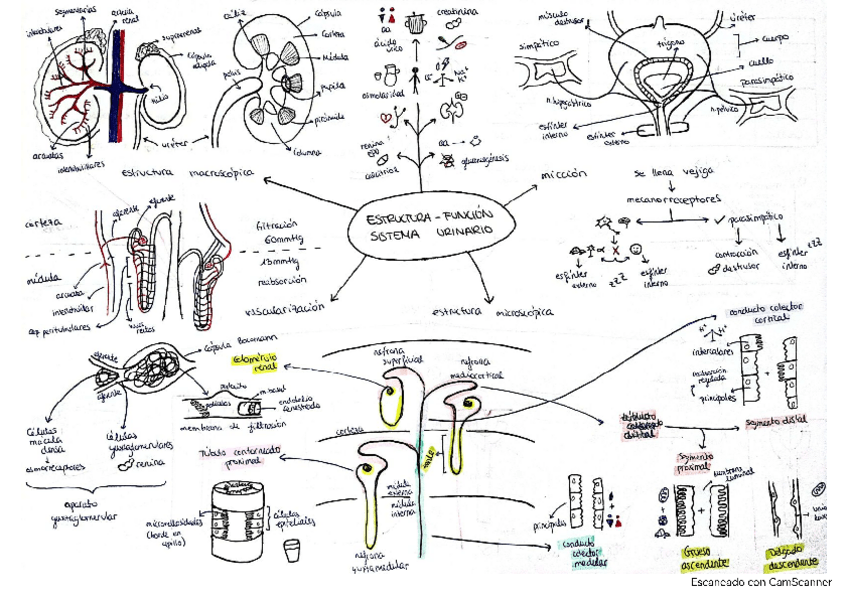 segmentarias
arteria
renal
suprarrenales
cáliz
cápsula
corteza
Médula
papila
pirámide
columna
pelvis
hilio
uréter
arcuatas
interlobulillares
estructura macroscópica
creatinina
aa
ácido
úrico
osmolaridad
renina
EPO
calcitriol
aa
gluconeogénesis
músculo
detrusor
uréter
cuerpo
trígono
cuello
simpático
parasimpático
n. hipogástrico
n. pélvico
esfínter
interno
esfínter
externo
micción
Se llena vejiga
mecanorreceptores
parasimpático
contracción
detrusor
esfínter
interno
esfínter
externo
esfínter
interno
ESTRUCTURA - FUNCIÓN
SISTEMA URINARIO
corteza
aferente
eferente
filtración
60mmHg
13mmHg
reabsorción
médula
arcuata
interlobulillar
cap peritubulares
vasos
rectos
vascularización
estructura microscópica
Cápsula Bowmann
Glomérulo
renal
aferente
eferente
podocito
m. basal
endotelio
fenestrado
membrana de filtración
Células
mácula
densa
osmorreceptores
Células
yuxtaglomerulares
renina
aparato
yuxtaglomerular
Túbulo contorneado
proximal
microvellosidades
(borde en
cepillo)
células
epiteliales
nefrona
superficial
nefrona
mediocortical
corteza
médula
externa
médula
interna
nefrona
yuxtamedular
asa
conducto colector
cortical
H+
K+
intercalares
reabsorción
regulada
principales
segmento distal
segmento
proximal
principales
conducto
colector
medular
membrana
luminal
Grueso
ascendente
Delgado
descendente
Escaneado con CamScanner